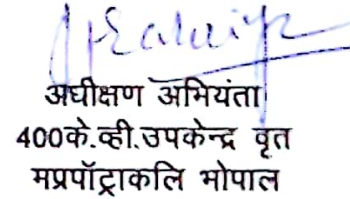 अधीक्षण अभियंता
400के.व्ही.उपकेन्द्र वृत
मप्रपॉट्राकलि भोपाल